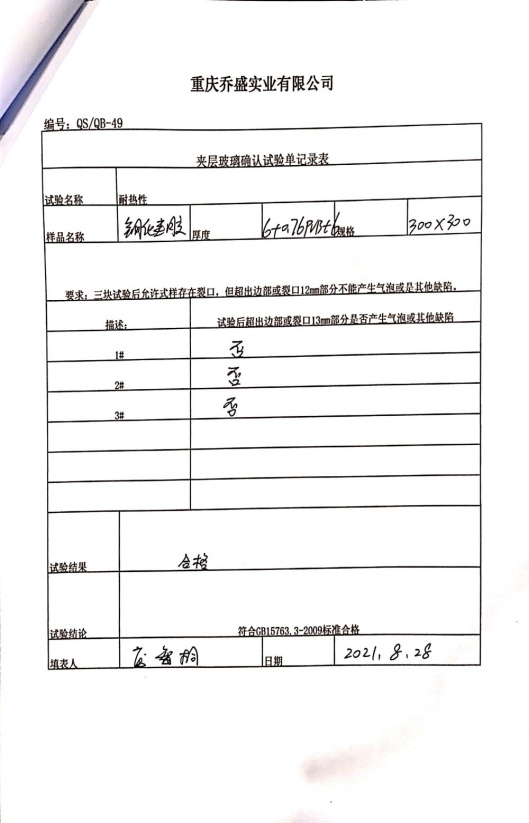 重庆乔盛实业有限公司
编号：QS/QB-49
夹层玻璃确认试验单记录表
试验名称 耐热性
样品名称 钢化夹胶 厚度 6+0.76PVB+6 规格 300×300
要求：三块试验后允许式样存在裂口，但超出边部或裂口12mm部分不能产生气泡或是其他缺陷。
描述： 试验后超出边部或裂口13mm部分是否产生气泡或其他缺陷
1# 否
2# 否
3# 否
试验结果 合格
试验结论 符合GB15763.3-2009标准合格
填表人 日期 2021.8.28